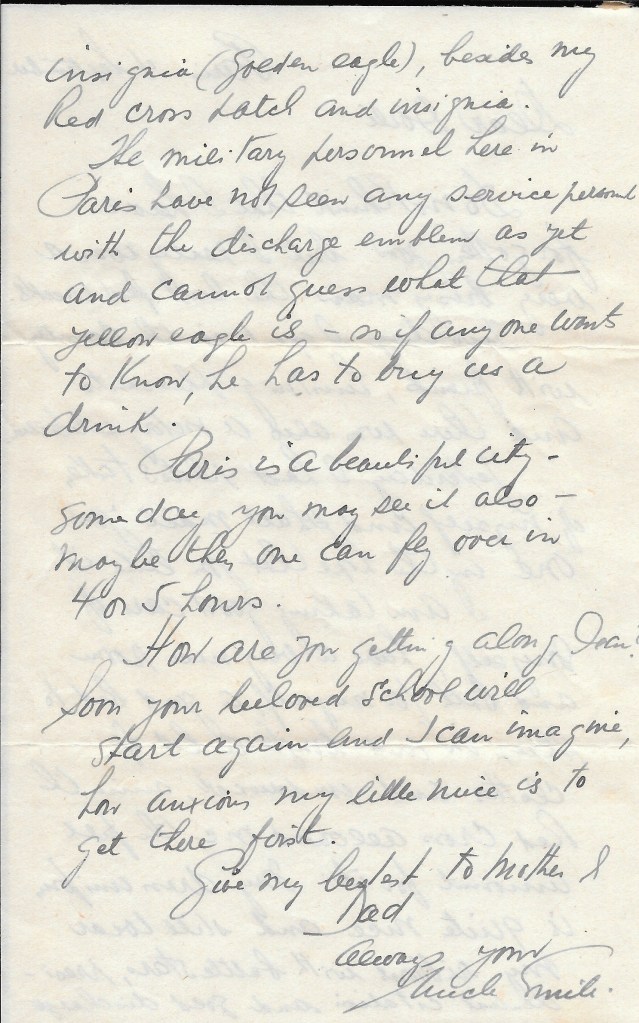 insignia (golden eagle), besides my
Red Cross patch and insignia.
The military personnel here in
Paris have not seen any service personnel
with the discharge emblem as yet
and cannot guess what that
yellow eagle is – so if anyone wants
to know, he has to buy us a
drink.
Paris is a beautiful city –
someday you may see it also –
maybe then one can fly over in
4 or 5 hours.
How are you getting along,
Soon your beloved school will
start again and I can imagine,
how anxious my little niece is to
get there first.
Give my best to Mother &
Dad
Always your
Uncle Emil.